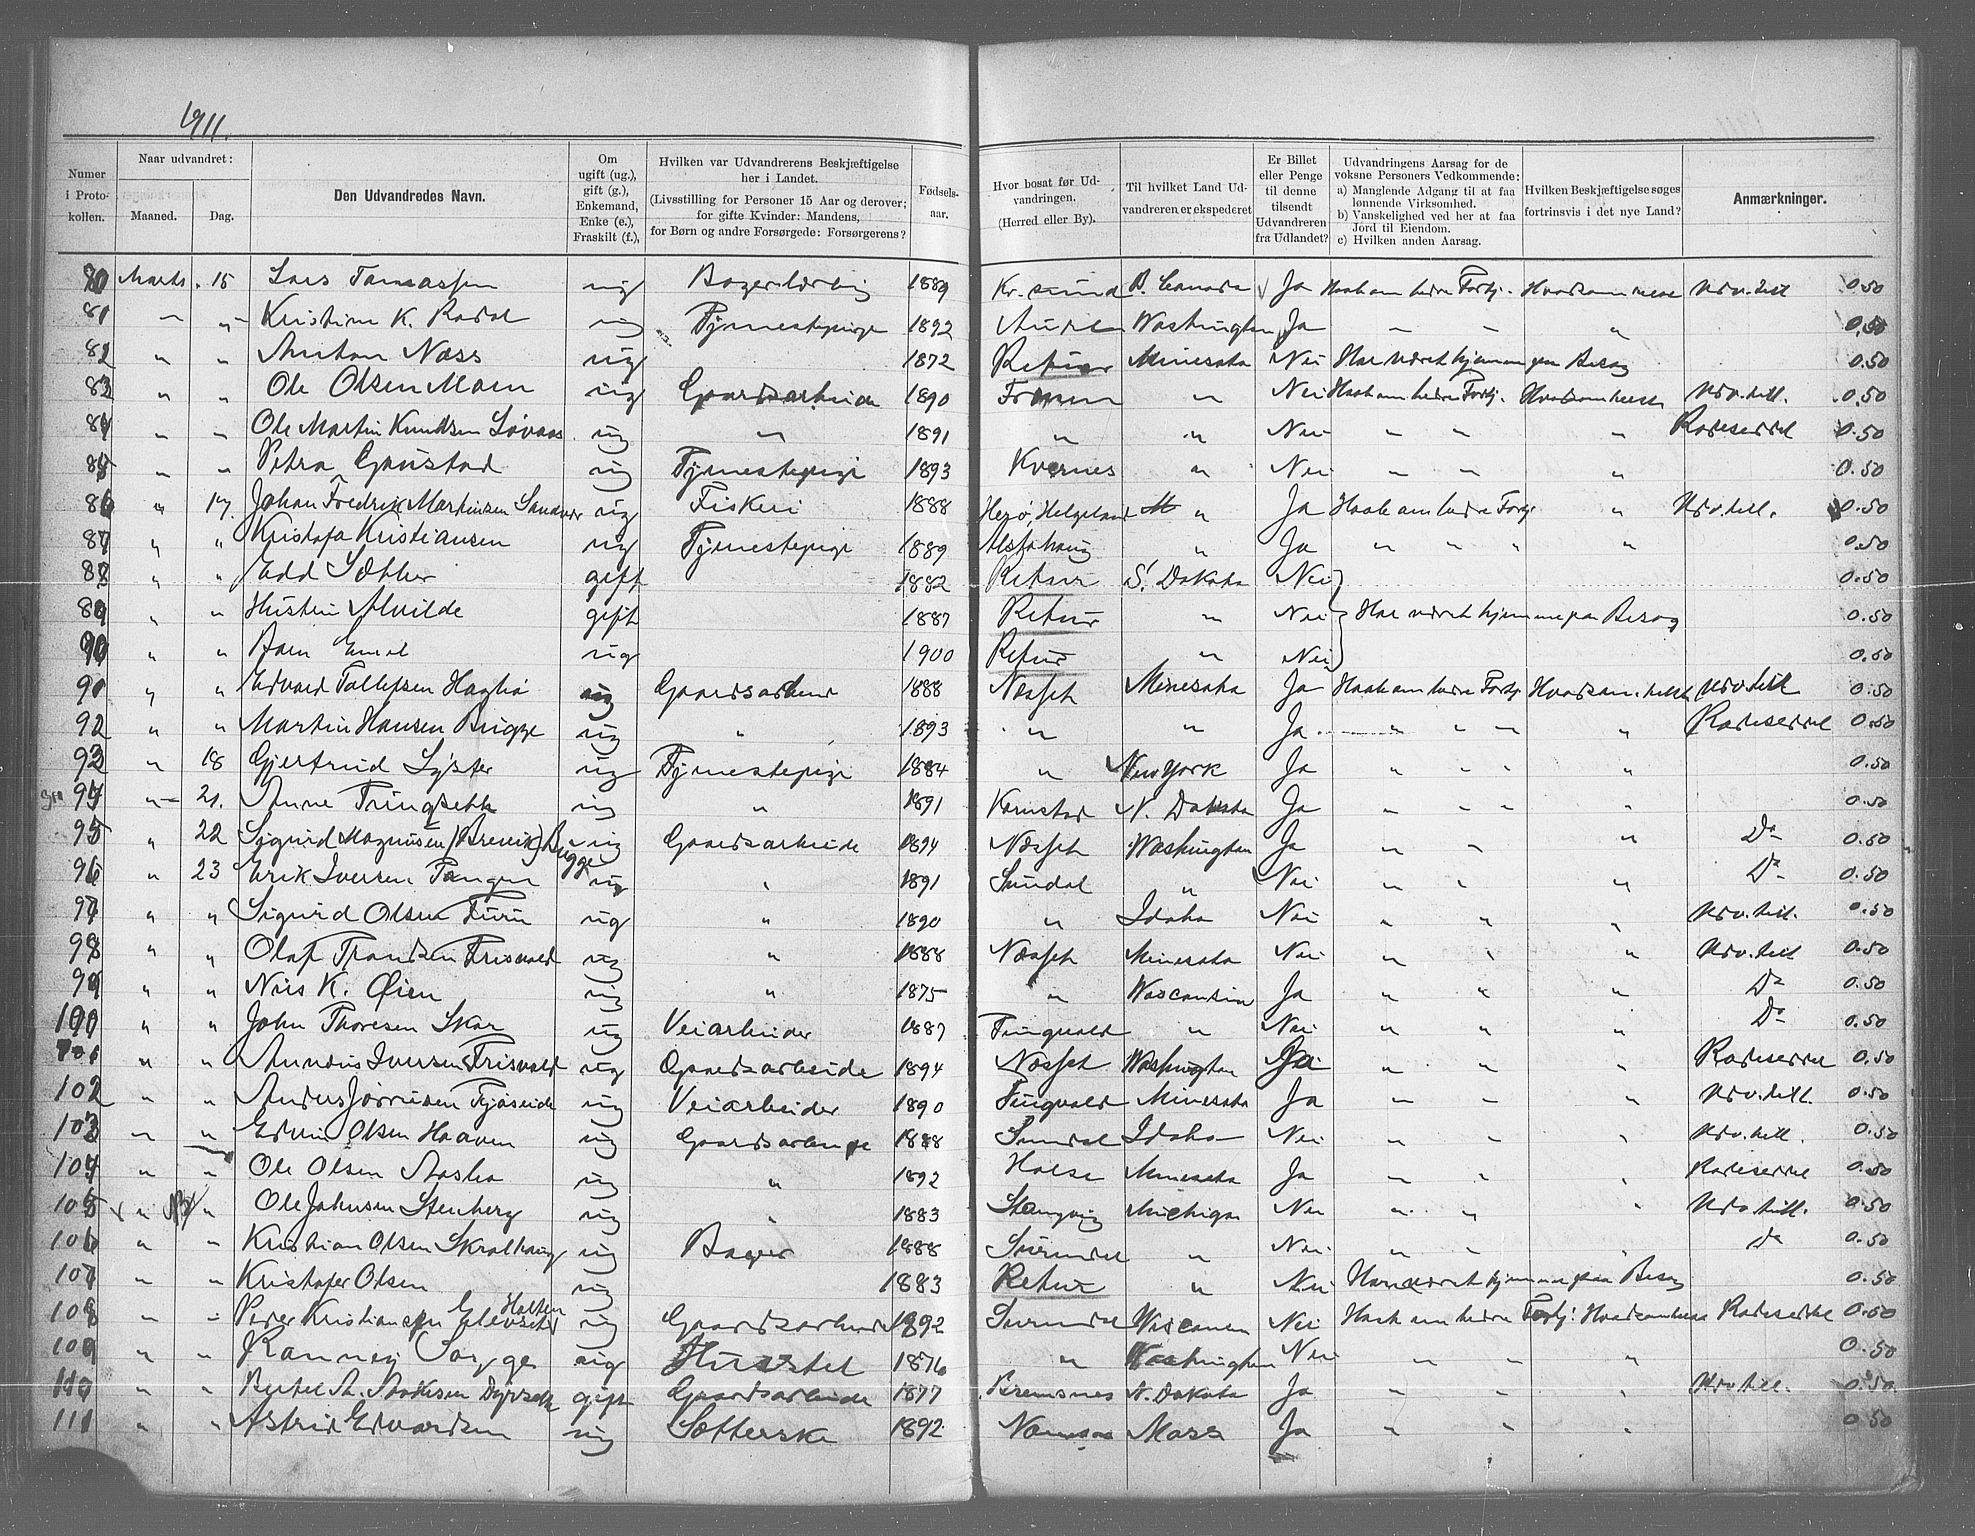 1911.
Numer i Proto-kollen. Naar udvandret: Maaned. Dag. Den Udvandredes Navn. Om ugift (ug.), gift (g.), Enkemand, Enke (e.), Fraskilt (f.), Hvilken var Udvandrerens Beskjæftigelse her i Landet. (Livsstilling for Personer 15 Aar og derover; for gifte Kvinder: Mandens, for Børn og andre Forsørgede: Forsørgerens? Fødsels-aar. Hvor bosat før Ud-vandringen. (Herred eller By). Til hvilket Land Ud-vandreren er ekspederet Er Billet eller Penge til denne tilsendt Udvandreren fra Udlandet? Udvandringens Aarsag for de voksne Personers Vedkommende: a) Manglende Adgang til at faa lønnende Virksomhed. b) Vanskelighed ved her at faa Jord til Eiendom. c) Hvilken anden Aarsag. Hvilken Beskjæftigelse søges fortrinsvis i det nye Land? Anmærkninger.
80 Marts 15 Lars Tomassen ug 1889 Kr. sund B. Canada Ja Haab om bedre Fortj. Udv. till 0.50
81 " " Kristine K. ug Tjenestepige 1892 Aure Washington Ja " " " 0.50
82 " " Anton Næss ug 1872 Retur Minesota Nei Har været hjemme paa Besøg 0.50
83 " " Ole Olsen Moen ug Gaardsarbeide 1890 " Nei Haab om bedre Fortj. Hvadsomhelst Udv. till. 0.50
84 " " Ole Martin Knudsen Løvaas ug " 1891 " " Nei " " " Rodeseddel 0.50
85 " " Petra Gaustad ug Tjenestepige 1893 Kvernes " Nei " " " 0.50
86 " 17. Johan Fredrik Martinsen ug Fiskeri 1888 Herø, Helgeland " Ja Haab om bedre Fortj " Udv. till. 0.50
87 " " Kristofa Kristiansen ug Tjenestepige 1889 Alstahaug " Ja " " " " 0.50
88 " " Edd Sæther gift 1882 Retur S. Dakota Nei 0.50
89 " " Hustru Alvilde gift 1887 Retur " Nei Har været hjemme paa Besøg 0.50
90 " " Barn ug 1900 Retur " Nei 0.50
91 " " Edvard Tollefsen ug Gaardsarbeide 1888 Næsset Minesota Ja Haab om bedre Fortj Hvadsomhelst Udv. till 0.50
92 " " Martin Hansen Brigge ug " 1893 " " Ja " " " Rodeseddel 0.50
93 " 18 Gjertrud ug Tjenestepige 1884 " New York Ja " " " " 0.50
94 " 21. Anne ug " 1891 Kornstad N. Dakota Ja " " " " 0.50
95 " 22 Sigurd Magnusen (Brevik) Bugge ug Gaardsarbeide 1894 Næsset Washington Ja " " " Do 0.50
96 " 23 Erik Iversen Tangen ug " 1891 Sundal " Nei " " " Do 0.50
97 " " Sigurd Olsen Furu ug " 1890 " Idaho Nei " " " Udv. till. 0.50
98 " " Olaf Trondsen Frisvold ug " 1888 Næsset Minesota Nei " " " Udv. till 0.50
99 " " Nils K. Øien ug " 1875 " Wisconsin Ja " " " Do 0.50
100 " " John Thoresen Skar ug Veiarbeider 1887 Tingvold " Nei " " " Do 0.50
101 " " Iversen Frisvold ug Gaardsarbeide 1894 Næsset Washington Ja " " " Rodeseddel 0.50
102 " " Anders ug Veiarbeider 1890 Tingvold Minesota Ja " " " Udv. till. 0.50
103 " " Edvin Olsen Haaven ug Gaardsarbeide 1888 Sundal Idaho Nei " " " Udv. till. 0.50
104 " " Ole Olsen ug " 1892 Halse Minesota Ja " " " Rodeseddel 0.50
105 " " Ole Johnsen Stenberg ug " 1883 Stangvig Michigan Nei " " " Udv. till. 0.50
106 " " Kristian Olsen ug Bager 1888 Surendal " Nei " " " do 0.50
107 " " Kristofer Olsen ug 1883 Retur " Nei Har været hjemme paa Besøg 0.50
108 " " Peder Kristiansen Holten ug Gaardsarbeide 1892 Surendal Nei Haab om bedre Fortj. Hvadsomhelst Rodeseddel 0.50
109 " " Ranney ug 1876 " Washington Nei " " " 0.50
110 " " Bertel A. gift Gaardsarbeide 1877 Bremsnes N. Dakota Ja " " " Udv. till. 0.50
111 " " Astrid Edvardsen ug 1892 Namsos Mass Ja " " " 0.50